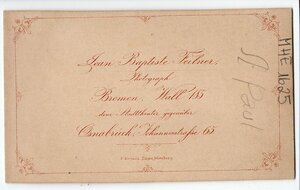 Jean Baptiste Feilner,
Photograph
Bremen, Wall 155
dem Stadttheater gegenüber
Osnabrück, Johannesstraße 65
MHE 1625